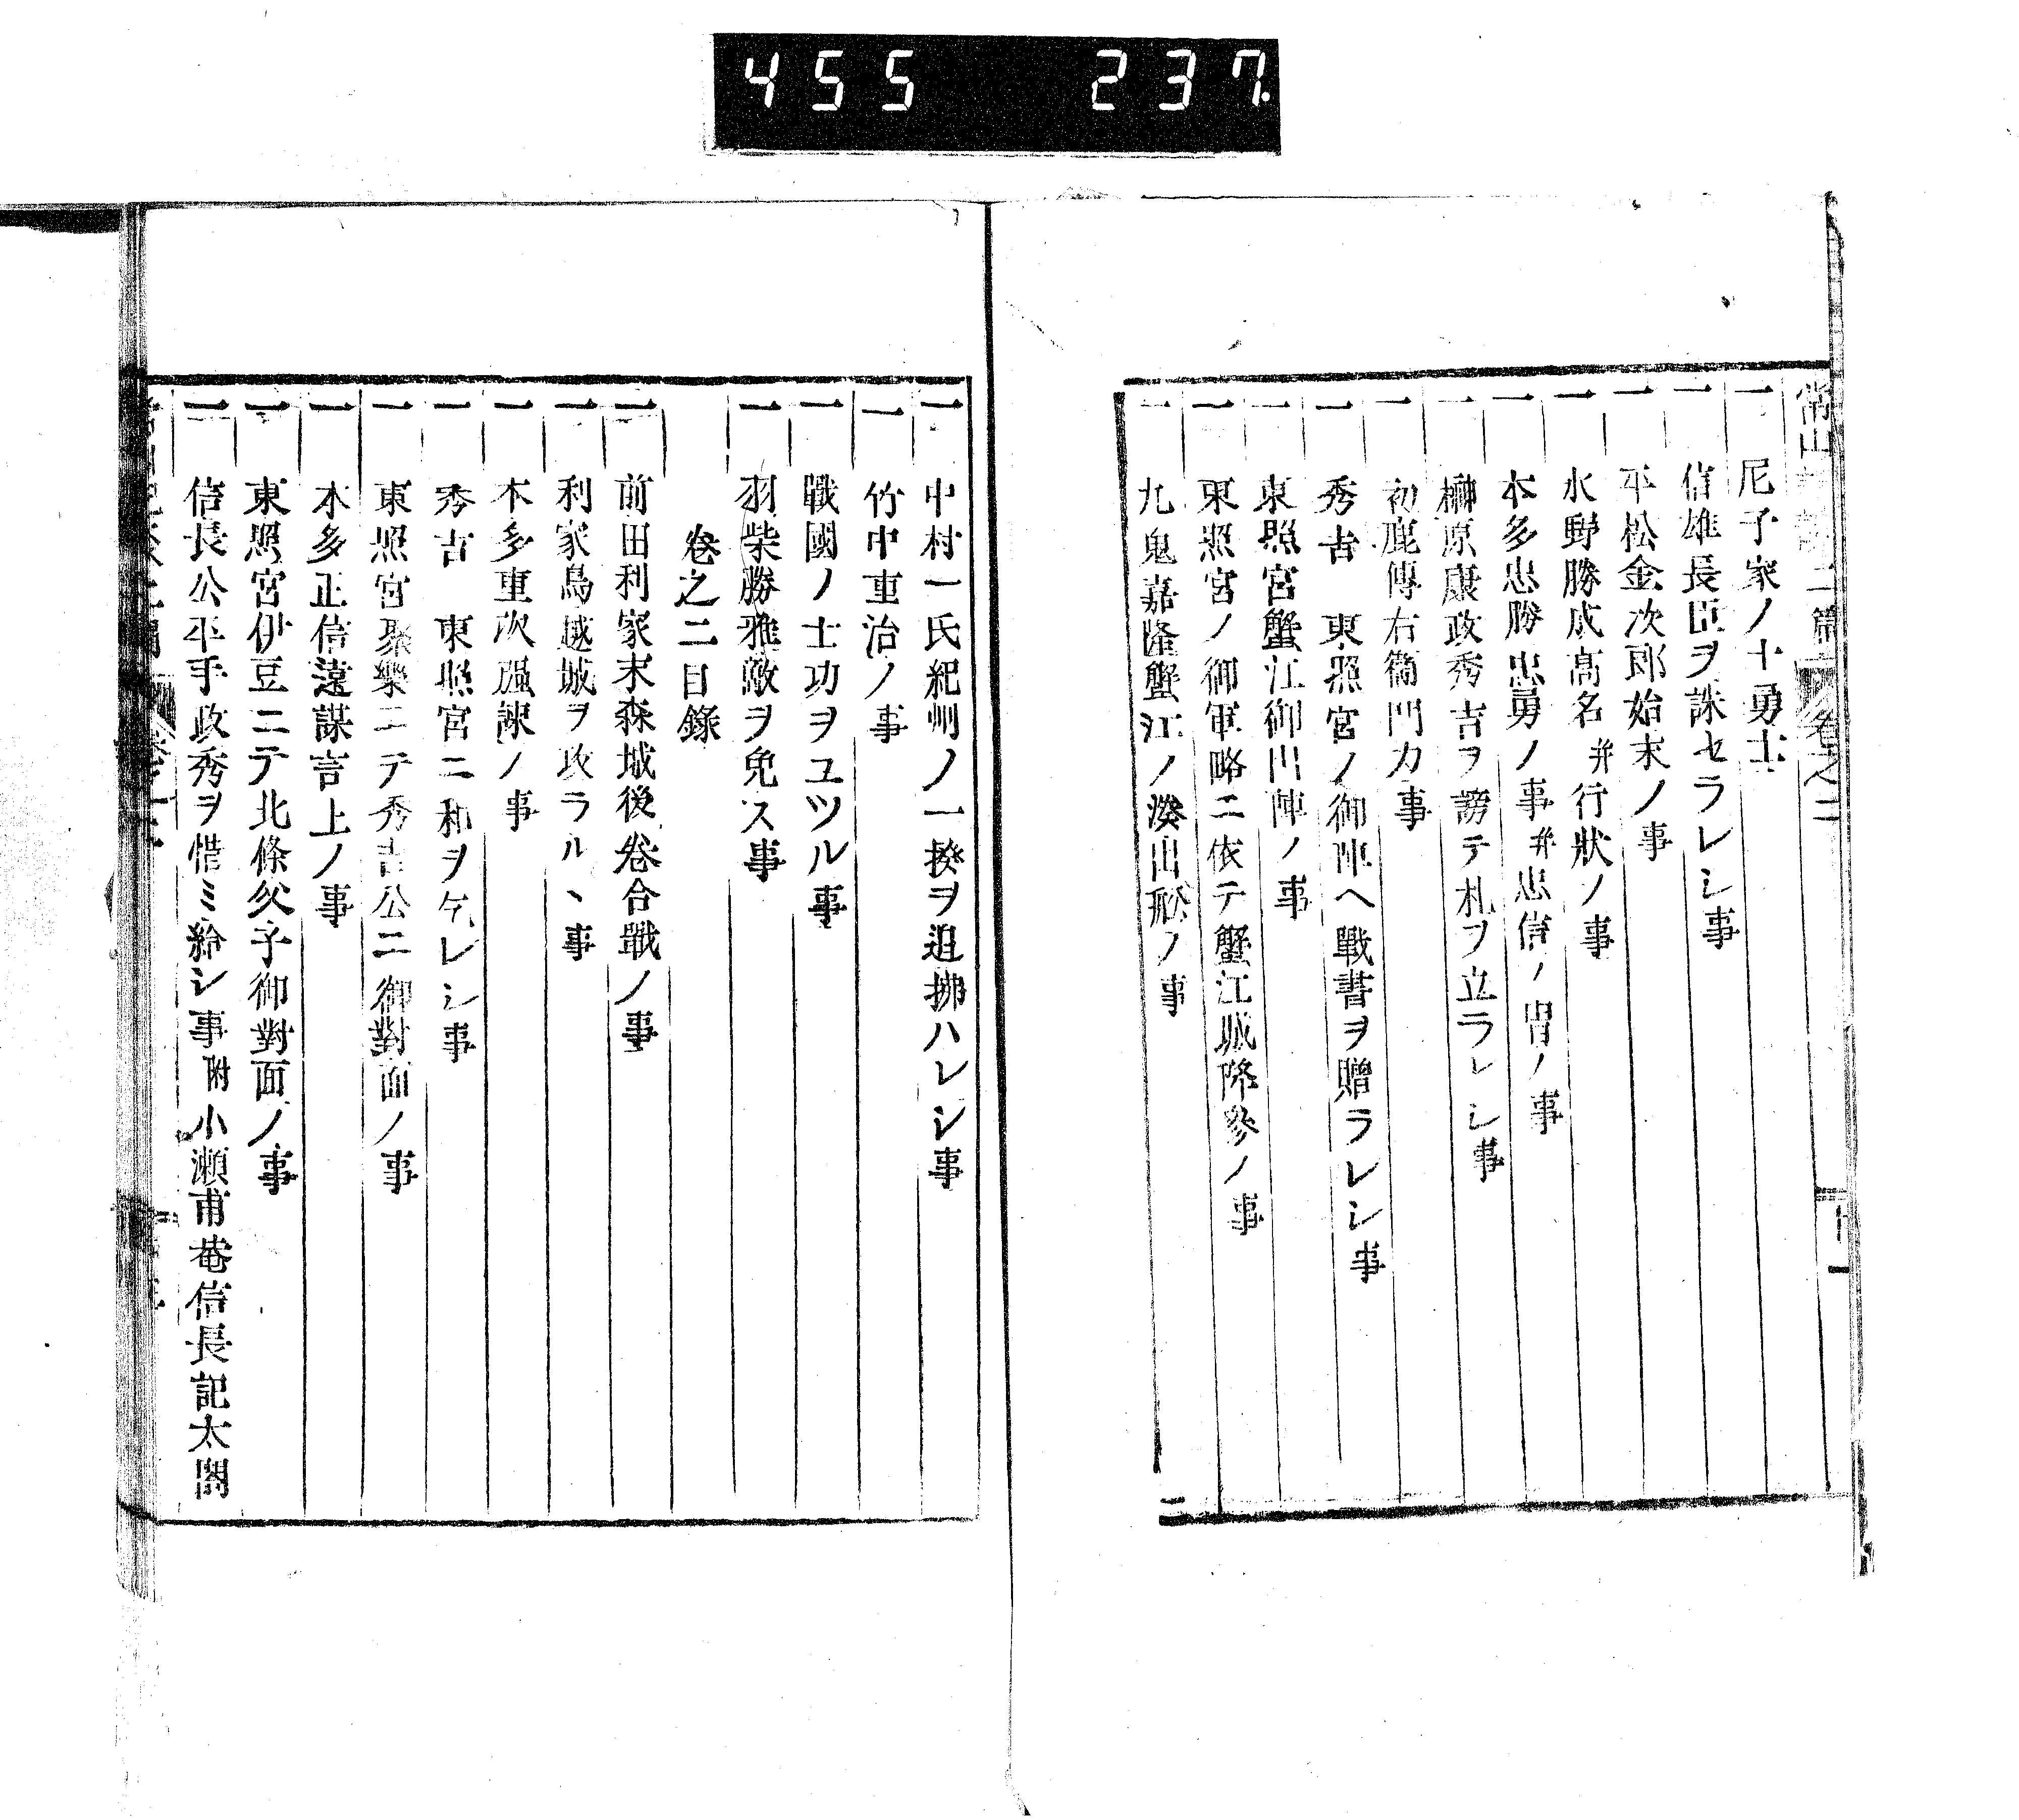 455 237.
一 尼子家ノ十勇士
一 信雄長臣ヲ誅セラレシ事
一 平松金次郎始末ノ事
一 水野勝成高名并行狀ノ事
一 本多忠勝忠勇ノ事并忠信ノ冑ノ事
一 榊原康政秀吉ヲ謗テ札ヲ立ラレシ事
一 初鹿傳右衞門カ事
一 秀吉 東照宮ノ御陣ヘ戰書ヲ贈ラレシ事
一 東照宮蟹江御出陣ノ事
一 東照宮ノ御軍略ニ依テ蟹江城降參ノ事
一 九鬼嘉隆蟹江ノ湊出ノ事
一 中村一氏紀州ノ一揆ヲ追拂ハレシ事
一 竹中重治ノ事
一 戰國ノ士功ヲユツル事
一 羽柴勝雅敵ヲ免ス事
卷之二目錄
一 前田利家末森城後卷合戰ノ事
一 利家鳥越城ヲ攻ラルヽ事
一 本多重次强諫ノ事
一 秀吉 東照宮ニ和ヲケレシ事
一 東照宮聚樂ニテ秀吉公ニ御對面ノ事
一 本多正信遠謀言上ノ事
一 東照宮伊豆ニテ北條父子御對面ノ事
一 信長公平手政秀ヲ惜ミ給シ事附小瀬甫菴信長記太閤